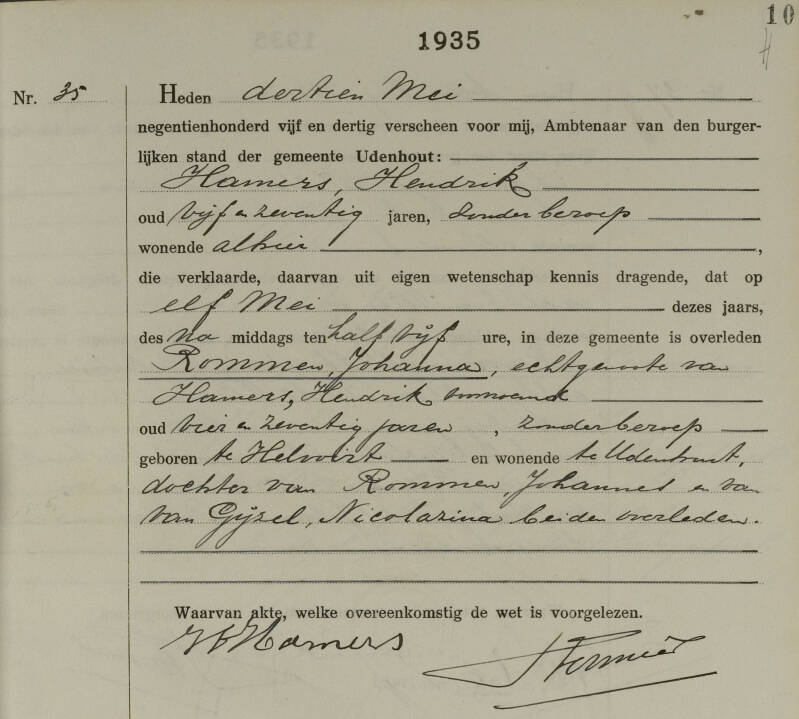 10
1935
Nr. 35 Heden dertien Mei
negentienhonderd vijf en dertig verscheen voor mij, Ambtenaar van den burger-
lijken stand der gemeente Udenhout:
Hamers, Hendrik
oud vijf en zeventig jaren, zonder beroep
wonende alhier,
die verklaarde, daarvan uit eigen wetenschap kennis dragende, dat op
elf Mei dezes jaars,
des na middags ten half vijf ure, in deze gemeente is overleden
Rommen, Johanna, echtgenoote van
Hamers, Hendrik voornoemd
oud vier en zeventig jaren, zonder beroep
geboren te Helvoirt en wonende te Udenhout,
dochter van Rommen, Johannes en van
van Gijzel, Nicolazina beiden overleden.
Waarvan akte, welke overeenkomstig de wet is voorgelezen.
Hamers